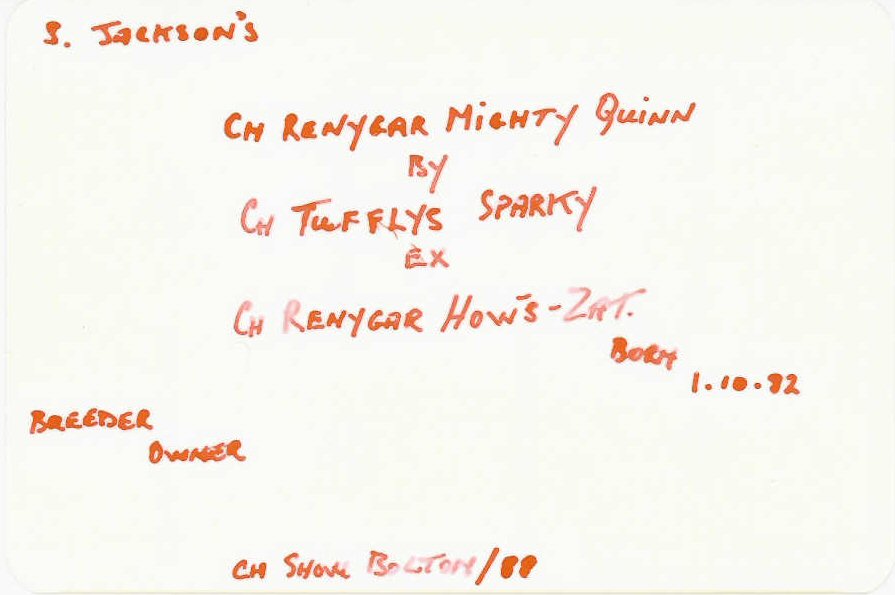 S. JACKSON'S
CH RENYGAR MIGHTY QUINN
BY
CH TUFFLYS SPARKY
EX
CH RENYGAR HOW'S-ZAT.
BORN
1.10.82
BREEDER
OWNER
CH SHOW BOLTON/88